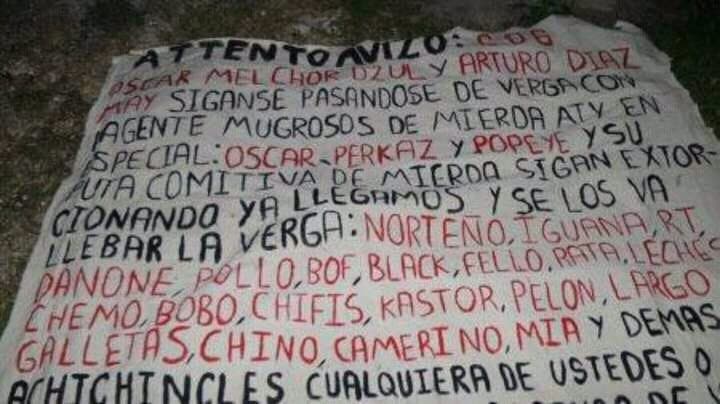 ATTENTO AVIZO: CDG
OSCAR MELCHOR DZUL Y ARTURO DIAZ
MAY SIGANSE PASANDOSE DE VERGA CON
LAGENTE MUGROSOS DE MIERDA ATY EN
ESPECIAL: OSCAR-PERKAZ Y POPEYE Y SU
PUTA COMITIVA DE MIERDA SIGAN EXTOR-
CIONANDO YA LLEGAMOS Y SE LOS VA
LLEBAR LA VERGA: NORTEÑO, IGUANA, RT,
DANONE, POLLO, BOF, BLACK, FELLO, RATA, LECHES
CHEMO, BOBO, CHIFIS, KASTOR, PELON, LARGO
GALLETAS, CHINO, CAMERINO, MIA Y DEMAS
ACHICHINCLES CUALQUIERA DE USTEDES O